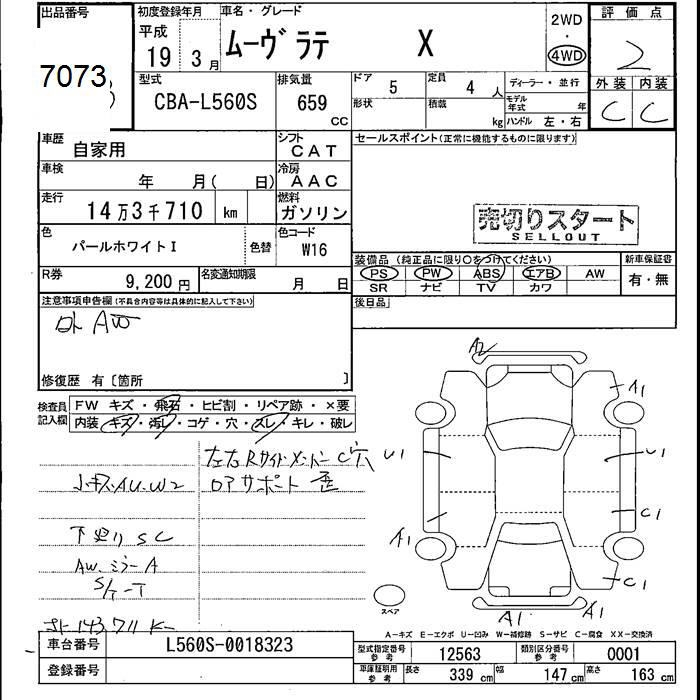 出品番号
7073
初度登録年月
平成
19 3月
車名・グレード
ムーヴ ラテ X
2WD
・
4WD
評価点
2
型式
CBA-L560S
排気量
659
CC
ドア
5
定員
4人
ディーラー・並行
外装 内装
C C
形状
積載
kg
モデル年式 年
ハンドル 左・右
車歴
自家用
シフト
CAT
セールスポイント(正常に機能するものに限ります)
車検
年 月( 日)
冷房
AAC
走行
14万3千710 km
燃料
ガソリン
売切りスタート
SELLOUT
色
パールホワイトI
色替
色コード
W16
装備品(純正品に限り〇をつけてください)
新車保証書
PS PW ABS エアB AW
有・無
SR ナビ TV カワ
R券
9,200円
名変通知期限
月 日
後日品
注意事項申告欄(不具合内容等は具体的に記入して下さい)
修復歴 有〔箇所 〕
検査員記入欄
FW キズ・飛石・ヒビ割・リペア跡・×要
内装 キズ・汚レ・コゲ・穴・スレ・キレ・破レ
左右Rサイドメンバー C穴
小キズ AU.W2
ロアサポート 歪
下廻り SC
AW.ミラーA
S/T-T
A2
A1
U1
U1
C1
A1
C1
A1
A1
スペア
A-キズ E-エクボ U-凹み W-補修跡 S-サビ C-腐食 XX-交換済
車台番号
L560S-0018323
型式指定番号 参考
12563
類別区分番号 参考
0001
登録番号
車庫証明用 参考
長さ 339cm 幅 147cm 高さ 163cm